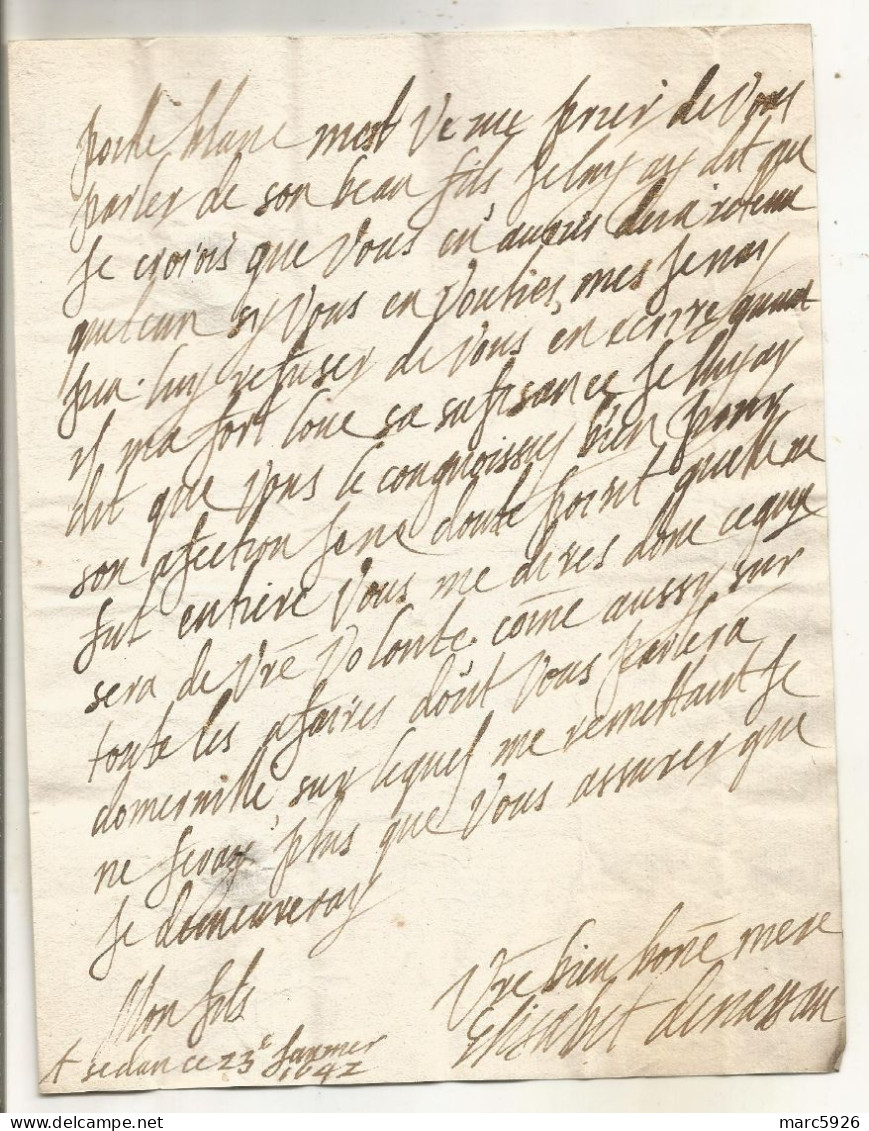 blanc mest venue prier de Vous
parler de son beau fils, Je luy ay dit que
Je crorois que Vous en auries desia retenu
quelcun sy Vous en Voulies, mes Je nay
pu luy refuser de Vous en ecrire, quand
il ma fort loué sa sufisance Je luy ay
dit que Vous le congnoissies bien pour
son afection Je ne doute point quelle ne
fut entiere Vous me dires donc ce quy
sera de Vre Volonté come aussy sur
toute les afaires dont Vous parlera
domerville, sur lequel me remettant Je
ne feray plus que Vous assurer que
Je demeureray
Mon fils
Vre bien bone mere
Elisabet denassau
A sedan ce 23e Januier
1642
marc5926